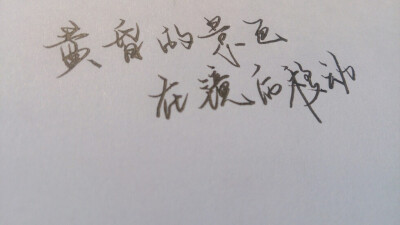 黄昏的景色
在镜后移动